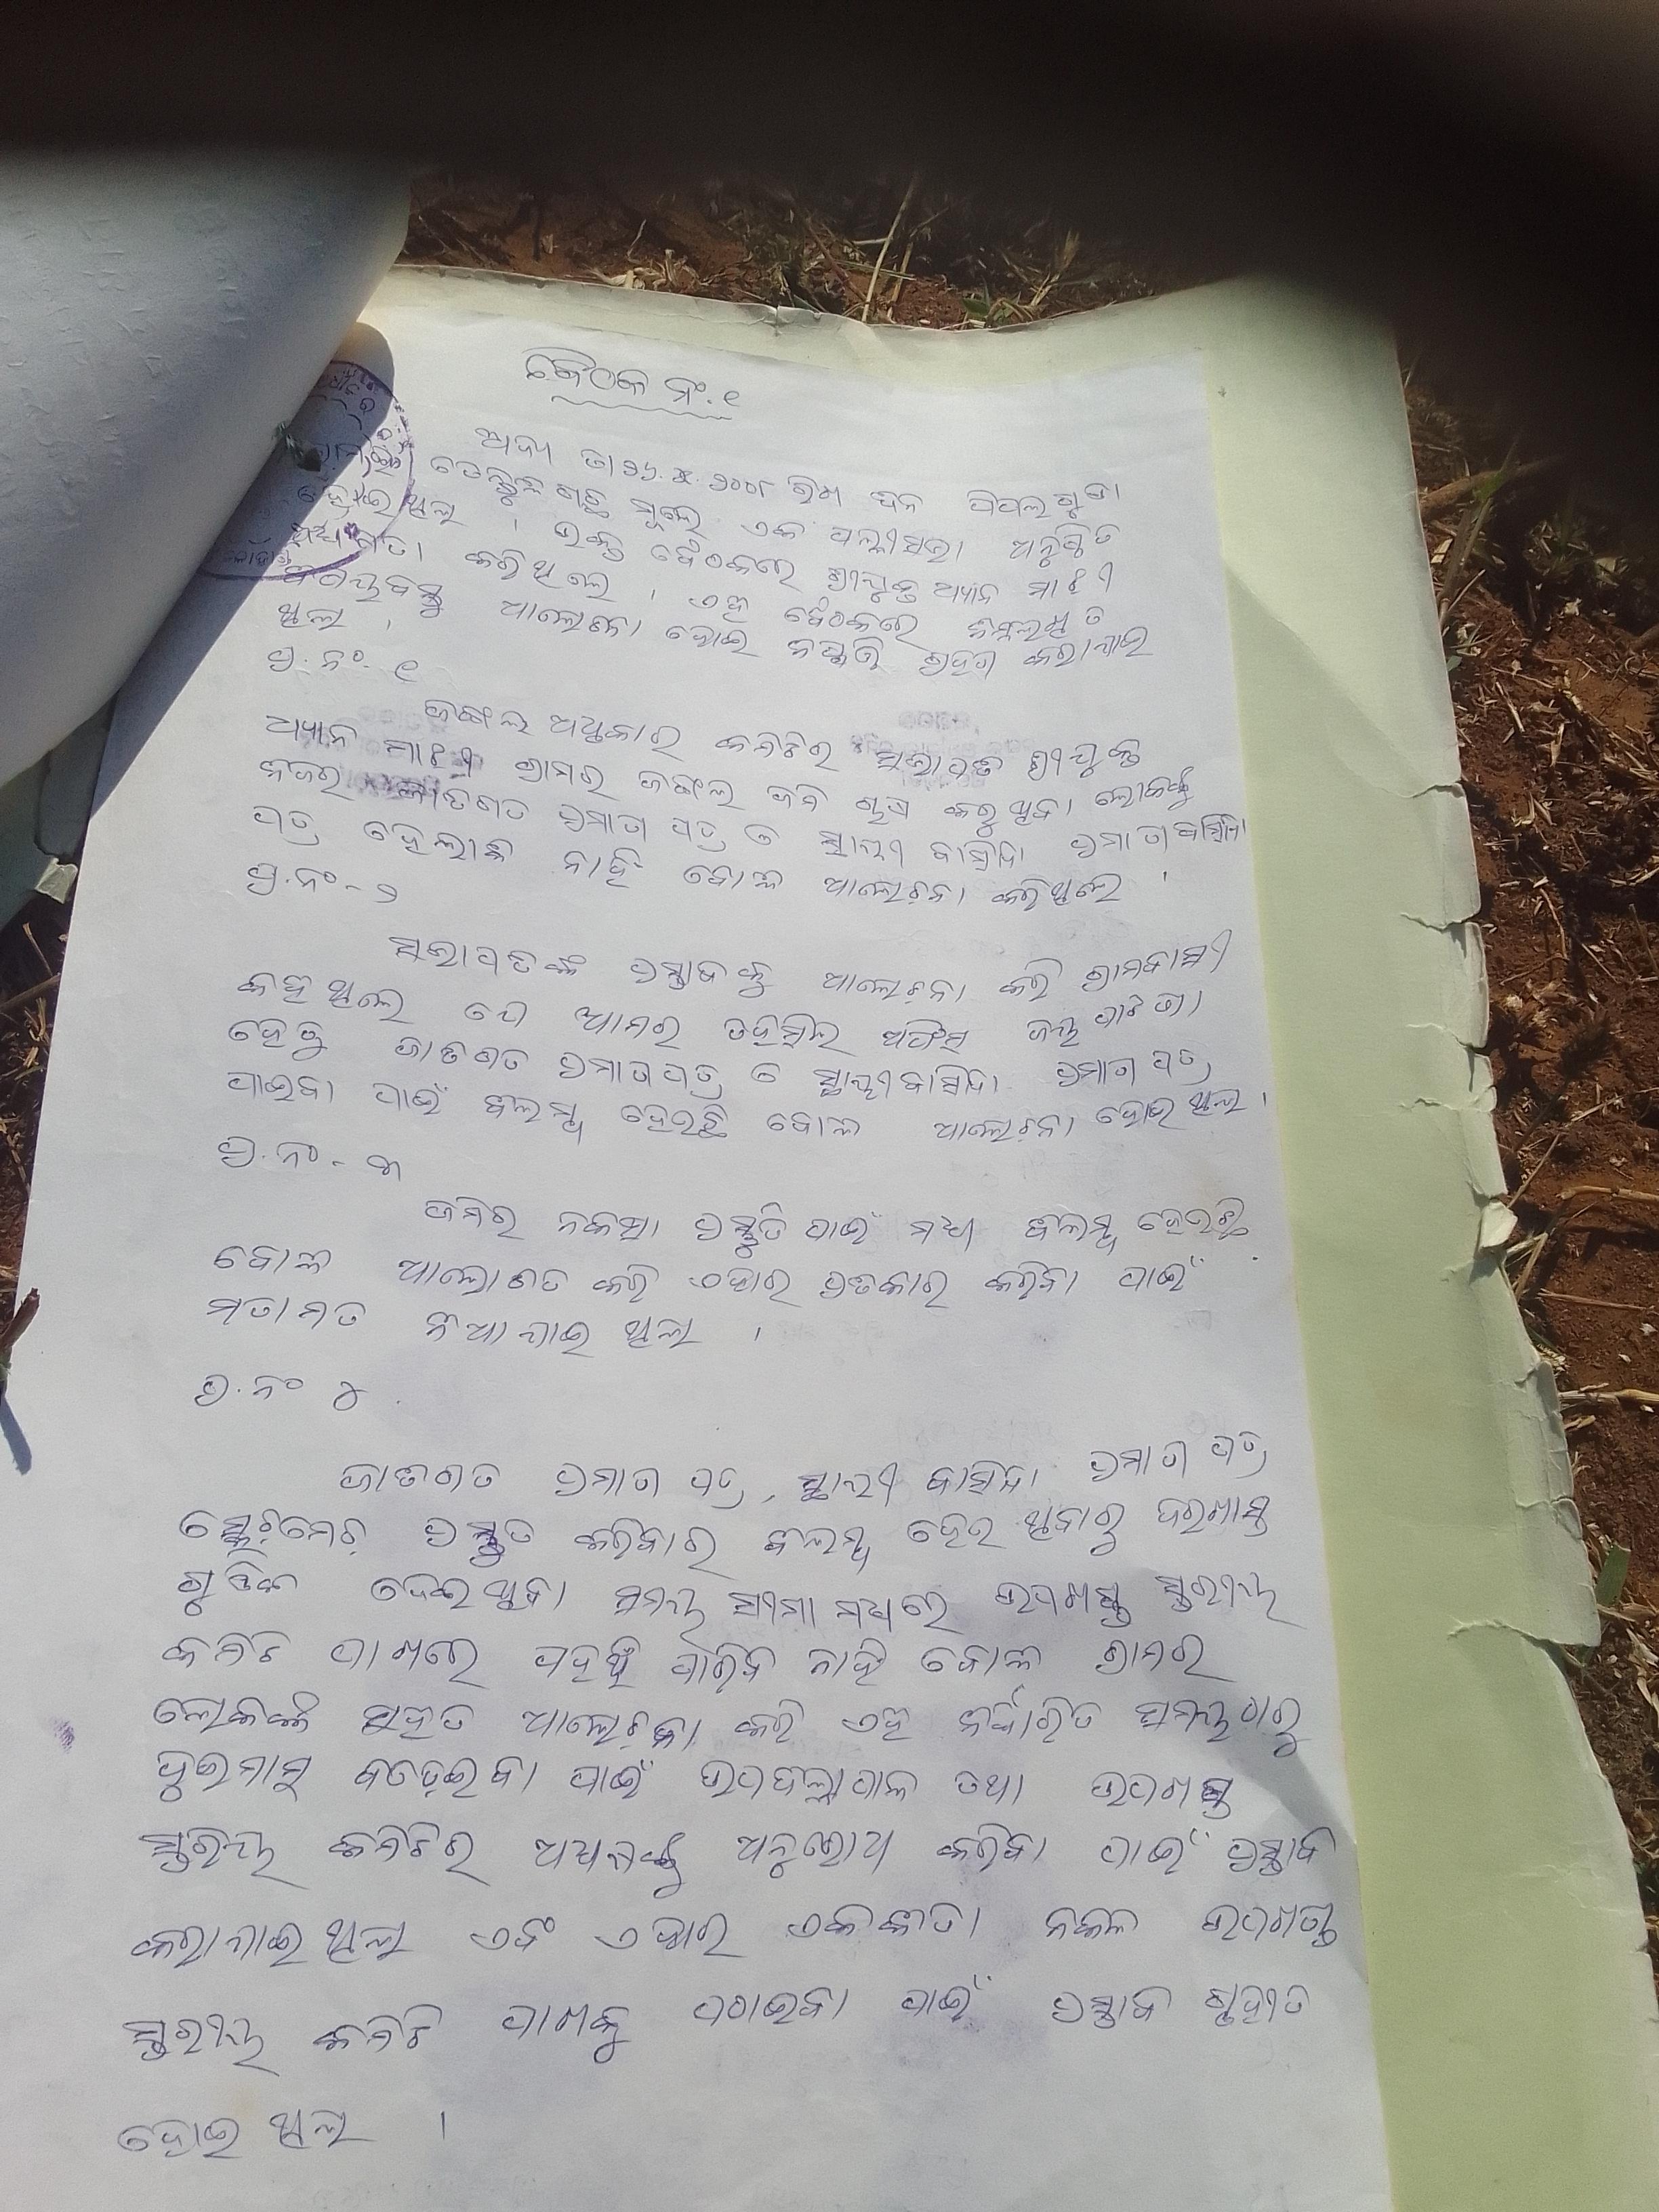 ବୈଠକ ନଂ.୧
ଅଦ୍ୟ ତା ୨୬.୪.୨୦୦୮ ରିଖ ଦିନ ପିପଲଗୁଡା
ତେନ୍ତୁଳି ଗଛ ମୂଳେ ଏକ ପଲ୍ଲୀସଭା ଅନୁଷ୍ଠିତ
ହୋଇଥିଲା । ଉକ୍ତ ବୈଠକରେ ଶ୍ରୀଯୁକ୍ତ ମାଝୀ
କରିଥିଲେ । ଏହି ବୈଠକରେ ନିମ୍ନଲିଖିତ
ଆଲୋଚନା ହୋଇ ନିଷ୍ପତ୍ତି ଗ୍ରହଣ କରାଯାଇ
ଥିଲା ।
ପ୍ର.ନଂ. ୧
ଜଙ୍ଗଲ ଅଧିକାର କମିଟିର ସଭାପତି ଶ୍ରୀଯୁକ୍ତ
ମାଝୀ ଗ୍ରାମର ଜଙ୍ଗଲ ଜମି ଚାଷ କରୁଥିବା ଲୋକଙ୍କୁ
ଜାତିଗତ ପ୍ରମାଣ ପତ୍ର ଓ ସ୍ଥାୟୀ ବାସିନ୍ଦା ପ୍ରମାଣ
ପତ୍ର ହେଲାକି ନାହିଁ ବୋଲି ଆଲୋଚନା କରିଥିଲେ ।
ପ୍ର.ନଂ- ୨
ସଭାପତିଙ୍କ ପ୍ରସ୍ତାବକୁ ଆଲୋଚନା କରି ଗ୍ରାମବାସୀ
କହିଥିଲେ ଯେ ଆମର ତହସିଲ ଅଫିସ ଜୟପାଟଣା
ହେତୁ ଜାତିଗତ ପ୍ରମାଣପତ୍ର ଓ ସ୍ଥାୟୀବାସିନ୍ଦା ପ୍ରମାଣ ପତ୍ର
ପାଇବା ପାଇଁ ବିଳମ୍ବ ହେଉଛି ବୋଲି ଆଲୋଚନା ହୋଇଥିଲା ।
ପ୍ର.ନଂ- ୩
ଜମିର ନକସା ପ୍ରସ୍ତୁତି ପାଇଁ ମଧ୍ୟ ବିଳମ୍ବ ହେଉଛି
ବୋଲି ଆଲୋଚିତ କରି ଏହାର ପ୍ରତିକାର କରିବା ପାଇଁ
ମତାମତ ନିଆଯାଇ ଥିଲା ।
ପ୍ର.ନଂ ୪
ଜାତିଗତ ପ୍ରମାଣ ପତ୍ର, ସ୍ଥାୟୀ ବାସିନ୍ଦା ପ୍ରମାଣ ପତ୍ର
ପ୍ରସ୍ତୁତ କରିବାର ବିଳମ୍ବ ହେଉଥିବାରୁ ଦରଖାସ୍ତ
ଗୁଡିକ ଦେଇଥିବା ସମୟ ସୀମା ମଧ୍ୟରେ ଉପଖଣ୍ଡ ସ୍ତରୀୟ
କମିଟି ପାଖରେ ପହଞ୍ଚି ପାରିବ ନାହିଁ ବୋଲି ଗ୍ରାମର
ଲୋକଙ୍କ ସହିତ ଆଲୋଚନା କରି ଏହି ନିର୍ଦ୍ଧାରିତ ସମୟଠାରୁ
ଦୁଇମାସ ବଢ଼େଇବା ପାଇଁ ଉପଜିଲ୍ଲାପାଳ ତଥା ଉପଖଣ୍ଡ
ସ୍ତରିୟ କମିଟିର ଅଧ୍ୟକ୍ଷଙ୍କୁ ଅନୁରୋଧ କରିବା ପାଇଁ ପ୍ରସ୍ତାବ
କରାଯାଇଥିଲା ଏବଂ ଏହାର ଏକ କିତା ନକଲ ଉପଖଣ୍ଡ
ସ୍ତରୀୟ କମିଟି ପାଖକୁ ପଠାଇବା ପାଇଁ ପ୍ରସ୍ତାବ ଗୃହୀତ
ହୋଇ ଥିଲା ।